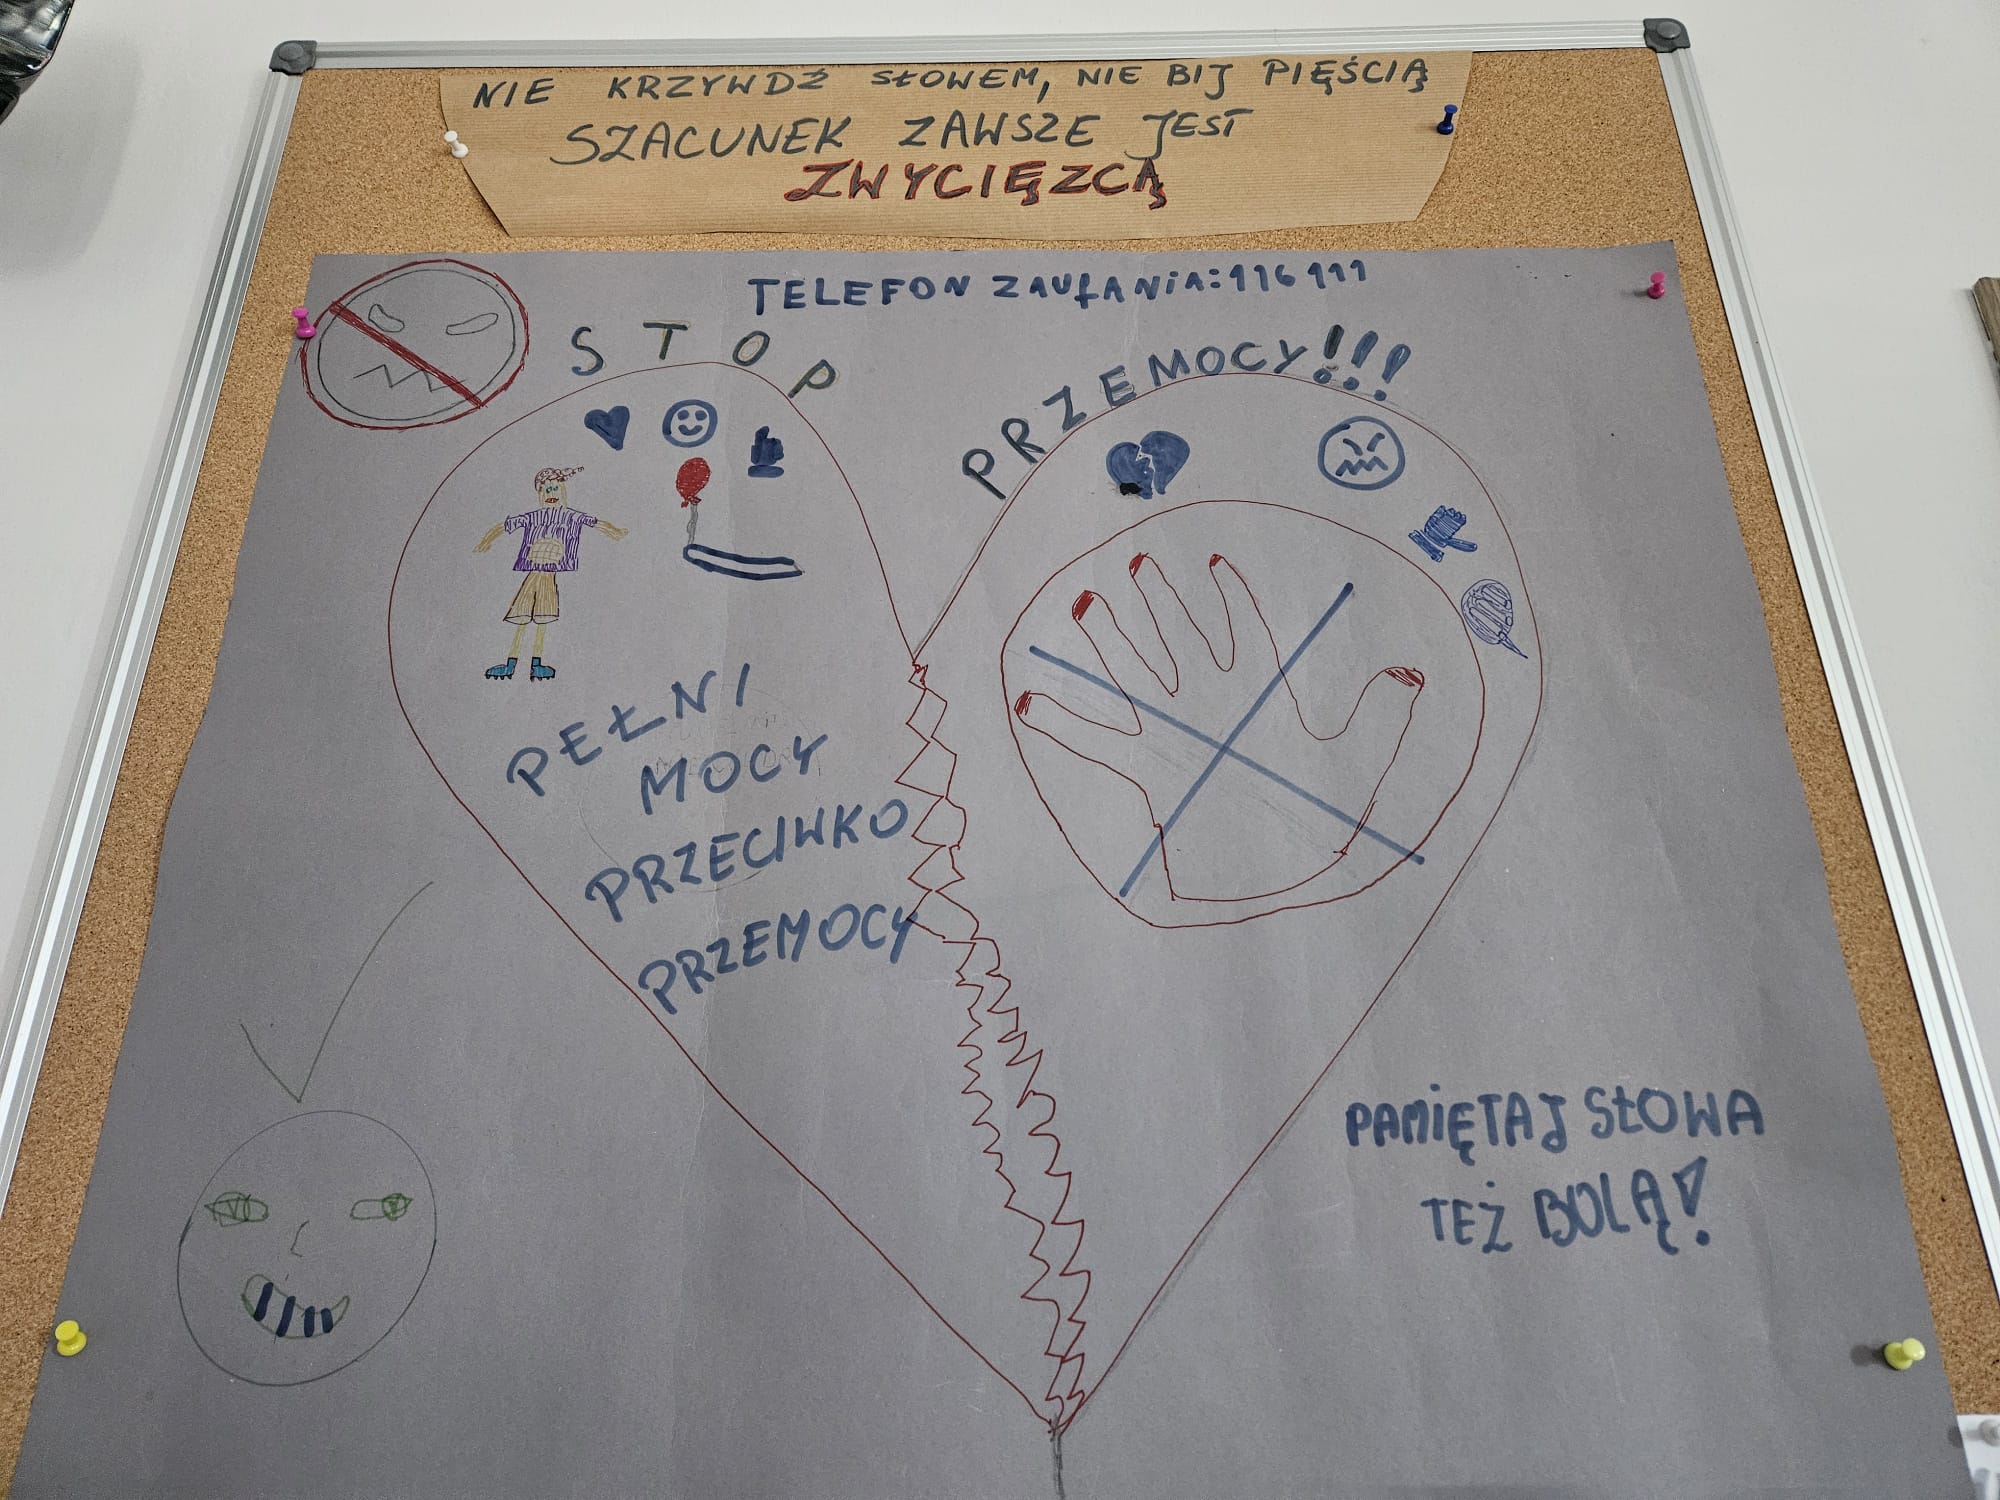 NIE KRZYWDŹ SŁOWEM, NIE BIJ PIĘŚCIĄ
SZACUNEK ZAWSZE JEST
ZWYCIĘZCĄ
TELEFON ZAUfANiA: 116 111
STOP PRZEMOCY!!!
PEŁNI
MOCY
PRZECIWKO
PRZEMOCY
PAMiĘTAJ SŁOWA
TEŻ BOLĄ!